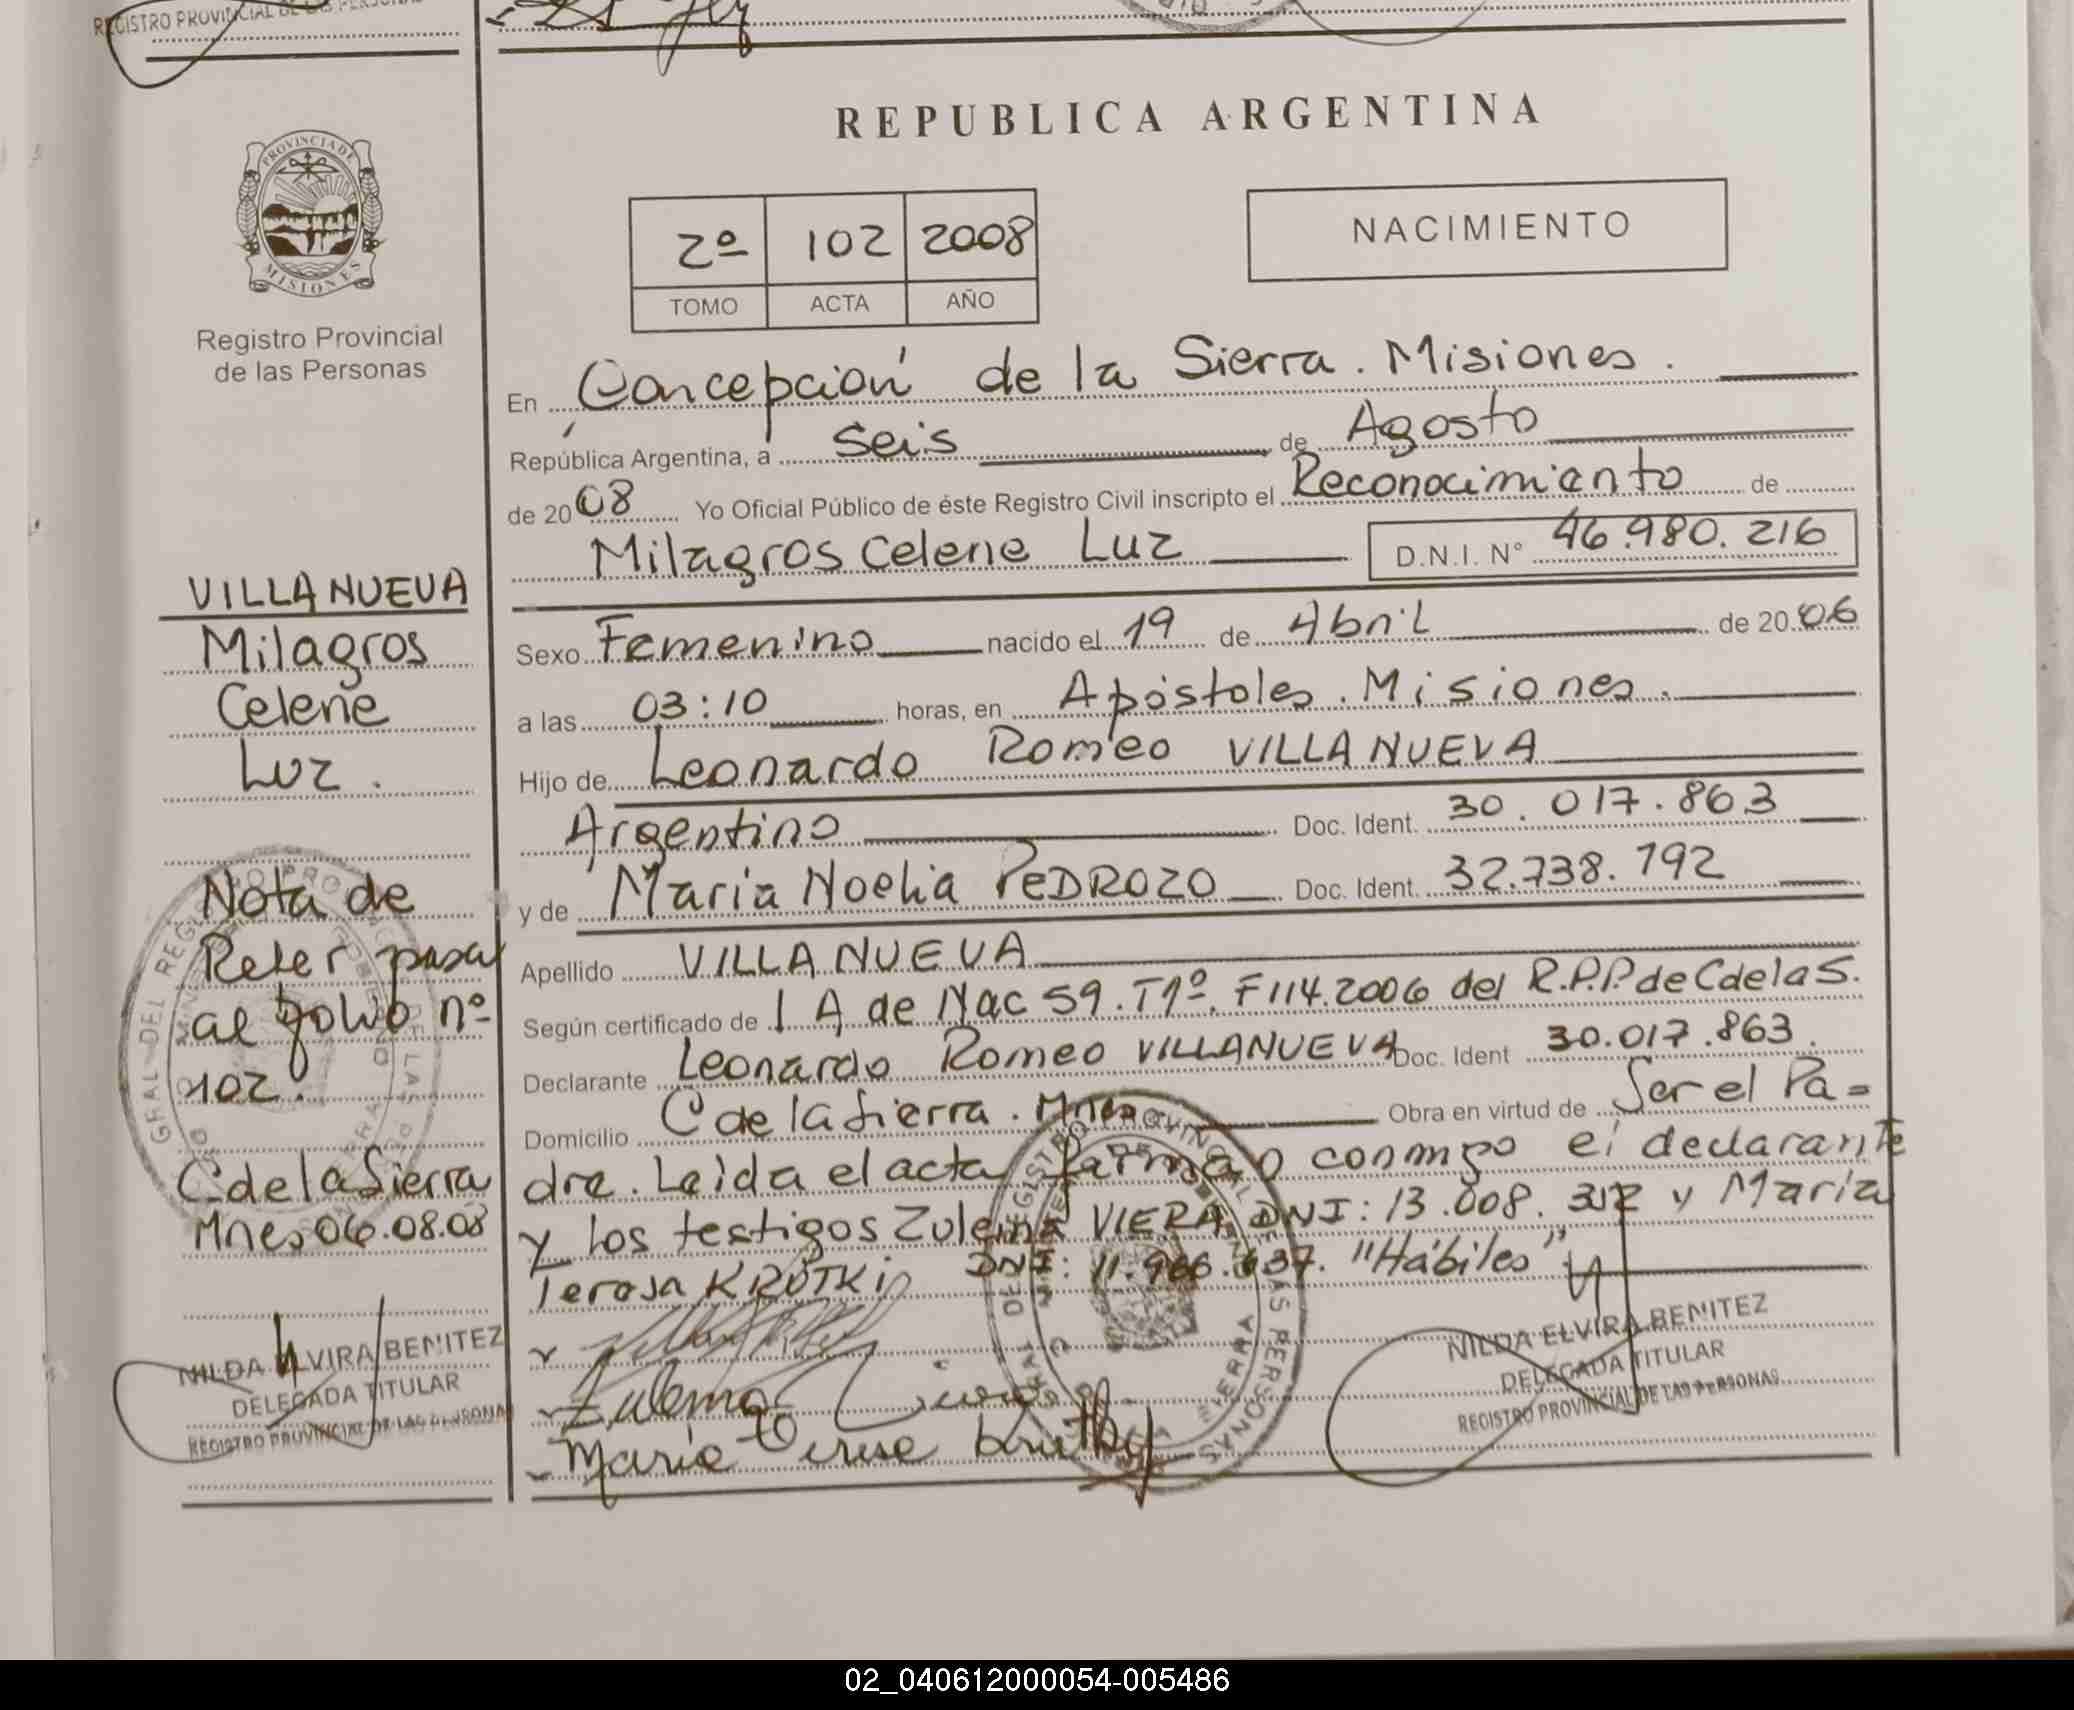 REGISTRO PROVINCIAL DE LAS PERSONAS
REPUBLICA ARGENTINA
PROVINCIA DE
MISIONES
Registro Provincial
de las Personas
2º 102 2008
TOMO ACTA AÑO
NACIMIENTO
En Concepción de la Sierra. Misiones.
República Argentina, a seis de Agosto
de 2008 Yo Oficial Público de éste Registro Civil inscripto el Reconocimiento de
Milagros Celene Luz D.N.I. N° 46.980.216
Sexo Femenino nacido el 19 de Abril de 2006
a las 03:10 horas, en Apóstoles. Misiones.
Hijo de Leonardo Romeo VILLANUEVA
Argentino Doc. Ident. 30.017.863
y de Maria Noelia PEDROZO Doc. Ident. 32.738.792
Apellido VILLANUEVA
Según certificado de 1 A de Nac 59. T1º. F114.2006 del R.P.P. de C de la S.
Declarante Leonardo Romeo VILLANUEVA Doc. Ident 30.017.863.
Domicilio C de la Sierra. Mnes Obra en virtud de Ser el Pa=
dre. Leida el acta firman conmigo el declarante
y los testigos Zulema VIERA DNI: 13.008.312 y María
Teresa KROTKI DNI: 11.966.637. "Hábiles"
Zulema
María
NILDA ELVIRA BENITEZ
DELEGADA TITULAR
REGISTRO PROVINCIAL DE LAS PERSONAS
VILLANUEVA
Milagros
Celene
Luz.
Nota de
Refer pasa
al folio nº
102.
C de la Sierra
Mnes 06.08.08
NILDA ELVIRA BENITEZ
DELEGADA TITULAR
REGISTRO PROVINCIAL DE LAS PERSONAS
02_040612000054-005486